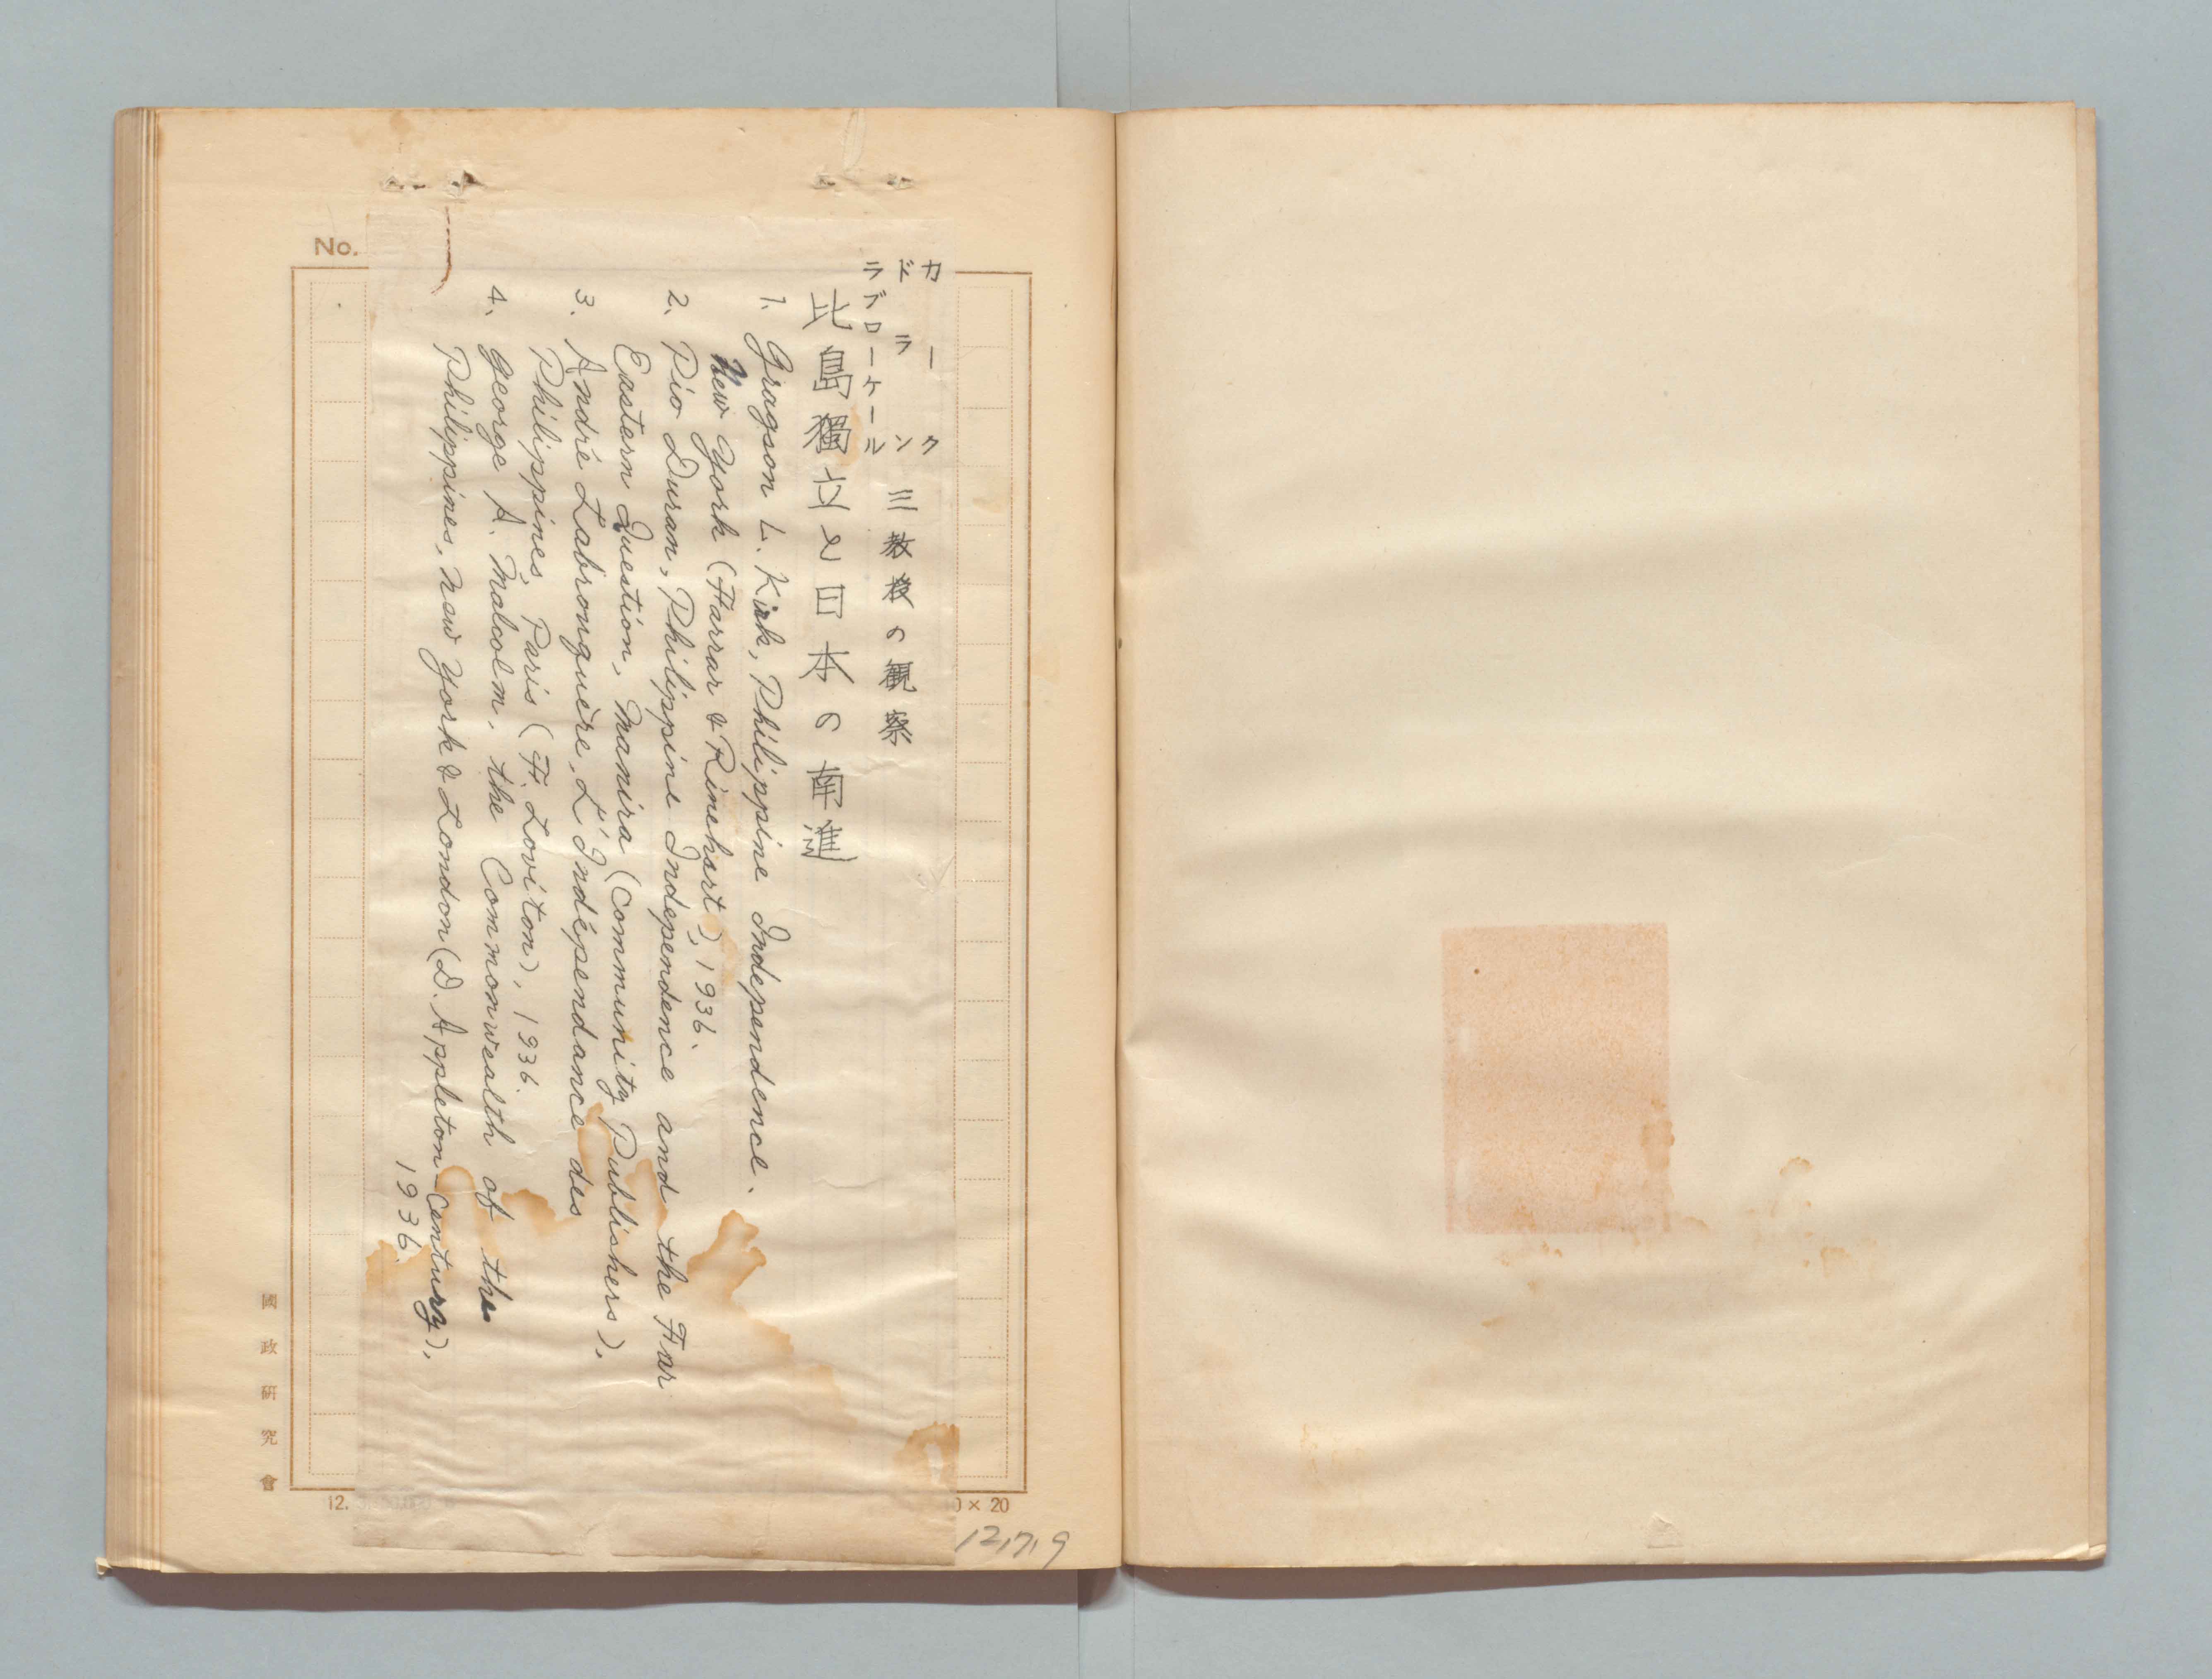 No.
カーク
ドラン
ラブローケール
三教授の観察
比島獨立と日本の南進
1. Gragson L. Kirk, Philippine Independence.
New York (Farrar & Rinehart), 1936.
2. Pio Duran, Philippine Independence and the Far
Eastern Question, Manira (Community Publishers).
3. André Labrouguère, L'Indépendance des
Philippines, Paris (F. Loviton), 1936.
4. George A. Malcolm, the Commonwealth of the
Philippines, New York & London (D. Appleton-Century),
1936.
國政研究會
12.
0×20
12.7.9